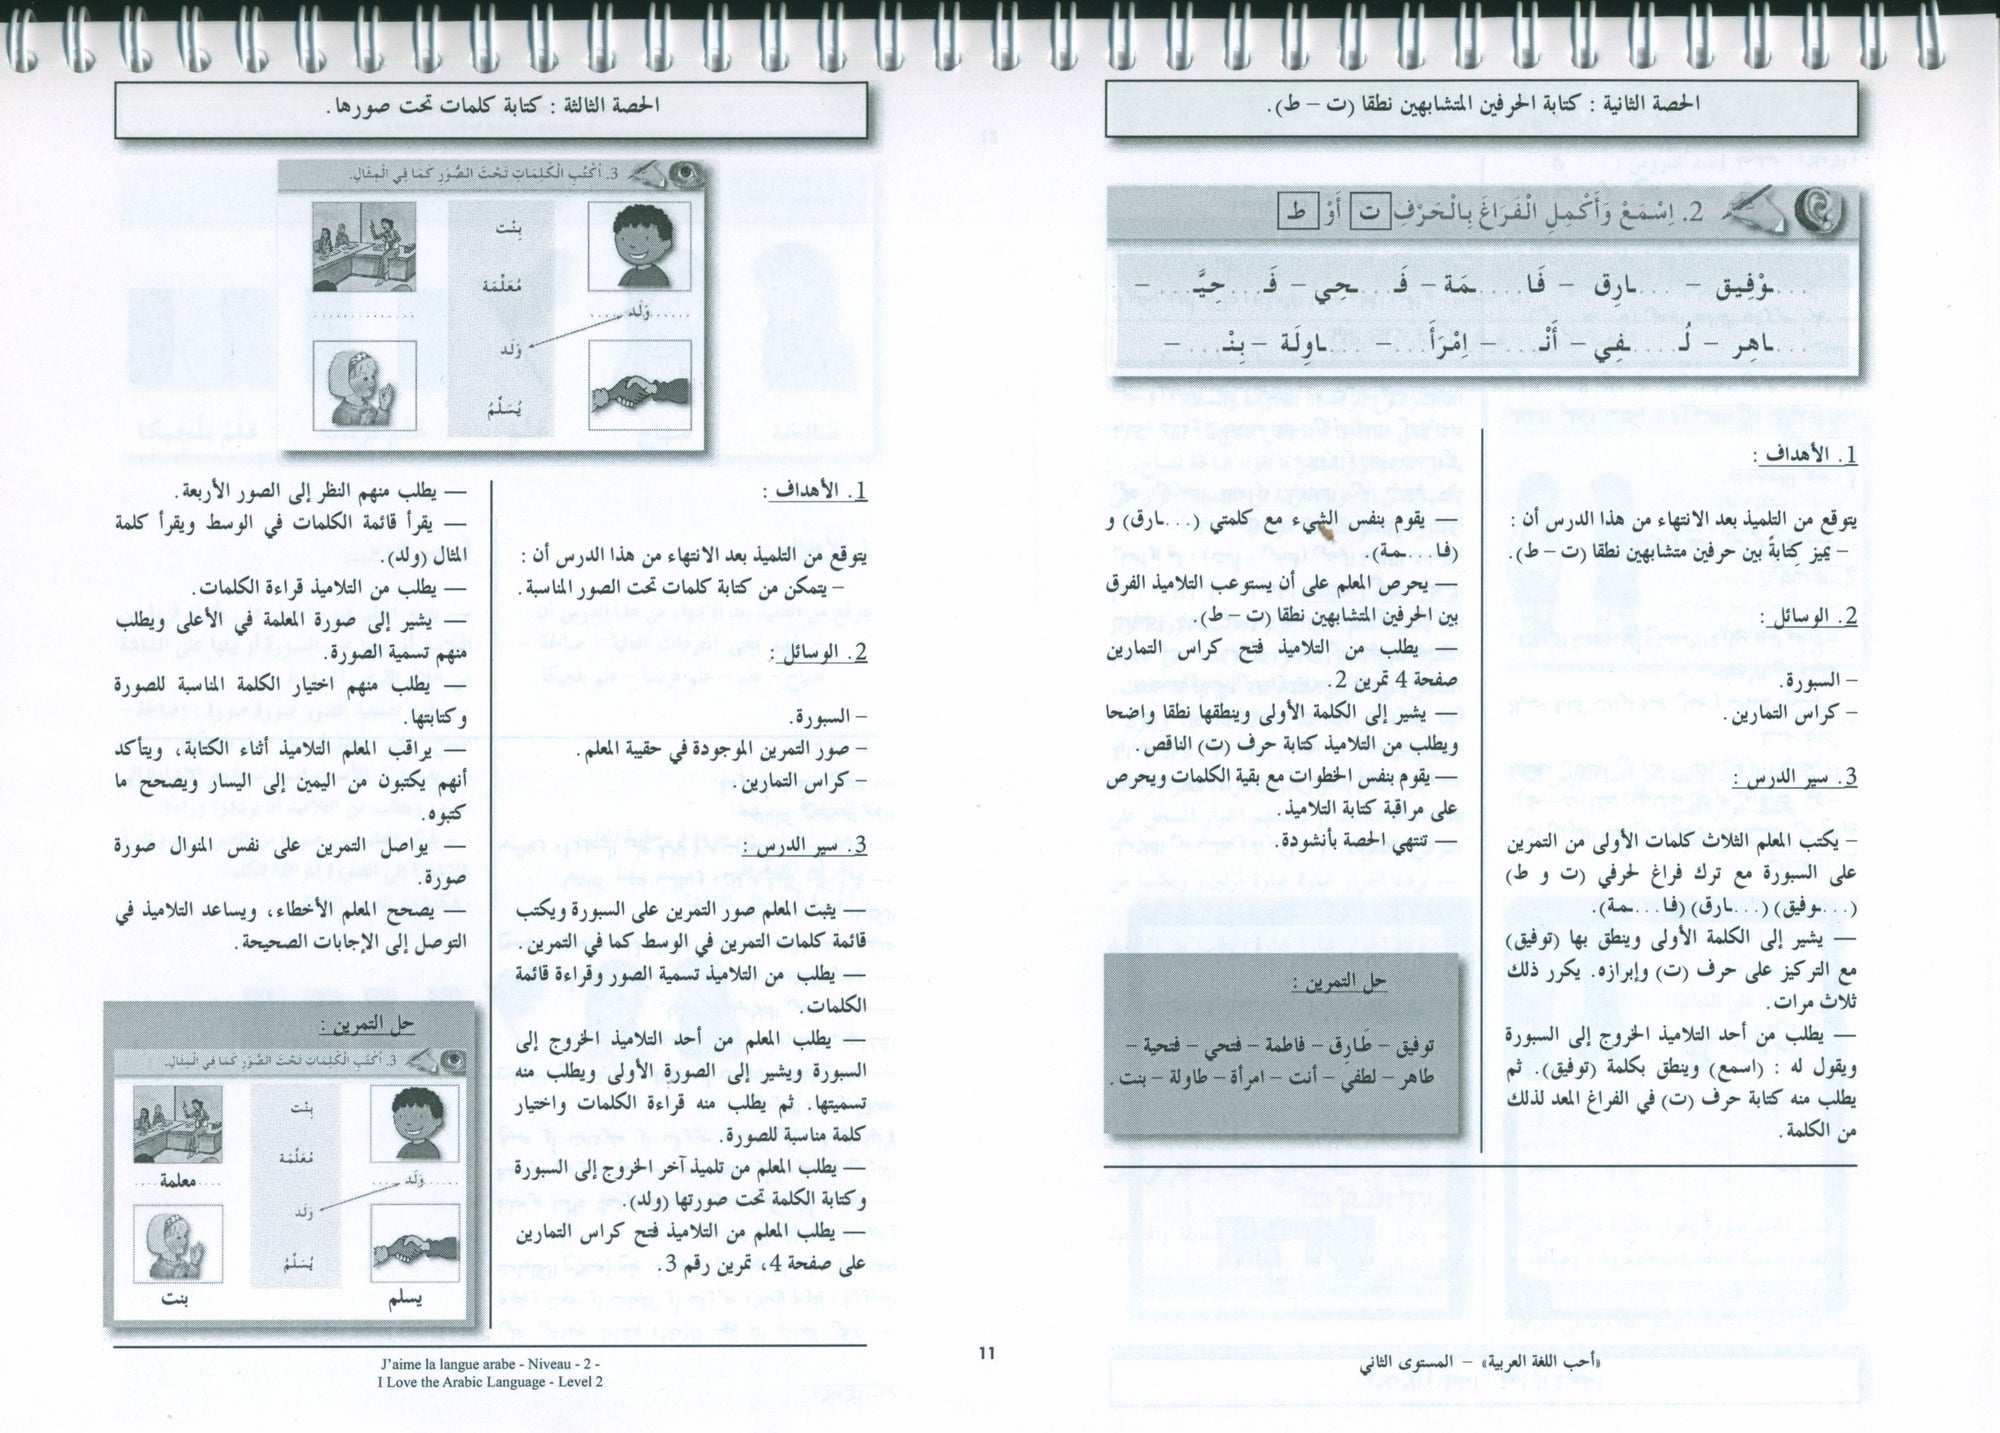 الحصة الثانية : كتابة الحرفين المتشابهين نطقا (ت – ط).
2. اِسْمَعْ وَأَكْمِلِ الْفَرَاغَ بِالْحَرْفِ ت أَوْ ط
....ـوْفِيق – ....ـارِق – فَا....ـمَة – فَـ....ـحِي – فَـ....ـحِيَّـ.... –
....ـاهِر – لُـ....ـفِي – أَنْـ.... – اِمْرَأَ.... – ....ـاوِلَة – بِنْـ.... –
1. الأهداف :
يتوقع من التلميذ بعد الانتهاء من هذا الدرس أن :
– يميز كِتابةً بين حرفين متشابهين نطقا (ت – ط).
2. الوسائل :
– السبورة.
– كراس التمارين.
3. سير الدرس :
– يكتب المعلم الثلاث كلمات الأولى من التمرين
على السبورة مع ترك فراغ لحرفي (ت و ط)
(...ـوفيق) (...ـارق) (فـا...ـمـة).
— يشير إلى الكلمة الأولى وينطق بها (توفيق)
مع التركيز على حرف (ت) وإبرازه. يكرر ذلك
ثلاث مرات.
— يطلب من أحد التلاميذ الخروج إلى السبورة
ويقول له : (اسمع) وينطق بكلمة (توفيق). ثم
يطلب منه كتابة حرف (ت) في الفراغ المعد لذلك
من الكلمة.
— يقوم بنفس الشيء مع كلمتي (...ـارق) و
(فـا...ـمـة).
— يحرص المعلم على أن يستوعب التلاميذ الفرق
بين الحرفين المتشابهين نطقا (ت – ط).
— يطلب من التلاميذ فتح كراس التمارين
صفحة 4 تمرين 2.
— يشير إلى الكلمة الأولى وينطقها نطقا واضحا
ويطلب من التلاميذ كتابة حرف (ت) الناقص.
— يقوم بنفس الخطوات مع بقية الكلمات ويحرص
على مراقبة كتابة التلاميذ.
— تنتهي الحصة بأنشودة.
حل التمرين :
توفيق – طَارِق – فاطمة – فتحي – فتحية –
طاهر – لطفي – أنت – امرأة – طاولة – بنت.
«أحب اللغة العربية» – المستوى الثاني
11
الحصة الثالثة : كتابة كلمات تحت صورها.
3. اُكْتُبِ الْكَلِمَاتِ تَحْتَ الصُّوَرِ كَمَا فِي الْمِثَالِ.
بِنْت
مُعَلِّمَة
وَلَد
وَلَد
يُسَلِّمُ
1. الأهداف :
يتوقع من التلميذ بعد الانتهاء من هذا الدرس أن :
– يتمكن من كتابة كلمات تحت الصور المناسبة.
2. الوسائل :
– السبورة.
– صور التمرين الموجودة في حقيبة المعلم.
– كراس التمارين.
3. سير الدرس :
— يثبت المعلم صور التمرين على السبورة ويكتب
قائمة كلمات التمرين في الوسط كما في التمرين.
— يطلب من التلاميذ تسمية الصور وقراءة قائمة
الكلمات.
— يطلب المعلم من أحد التلاميذ الخروج إلى
السبورة ويشير إلى الصورة الأولى ويطلب منه
تسميتها. ثم يطلب منه قراءة الكلمات واختيار
كلمة مناسبة للصورة.
— يطلب المعلم من تلميذ آخر الخروج إلى السبورة
وكتابة الكلمة تحت صورتها (ولد).
— يطلب المعلم من التلاميذ فتح كراس التمارين
على صفحة 4، تمرين رقم 3.
— يطلب منهم النظر إلى الصور الأربعة.
— يقرأ قائمة الكلمات في الوسط ويقرأ كلمة
المثال (ولد).
— يطلب من التلاميذ قراءة الكلمات.
— يشير إلى صورة المعلمة في الأعلى ويطلب
منهم تسمية الصورة.
— يطلب منهم اختيار الكلمة المناسبة للصورة
وكتابتها.
— يراقب المعلم التلاميذ أثناء الكتابة، ويتأكد
أنهم يكتبون من اليمين إلى اليسار ويصحح ما
كتبوه.
— يواصل التمرين على نفس المنوال صورة
صورة.
— يصحح المعلم الأخطاء، ويساعد التلاميذ في
التوصل إلى الإجابات الصحيحة.
حل التمرين :
3. اُكْتُبِ الْكَلِمَاتِ تَحْتَ الصُّوَرِ كَمَا فِي الْمِثَالِ.
بِنْت
مُعَلِّمَة
وَلَد
معلمة
وَلَد
يُسَلِّمُ
يسلم
بنت
J'aime la langue arabe - Niveau - 2 -
I Love the Arabic Language - Level 2